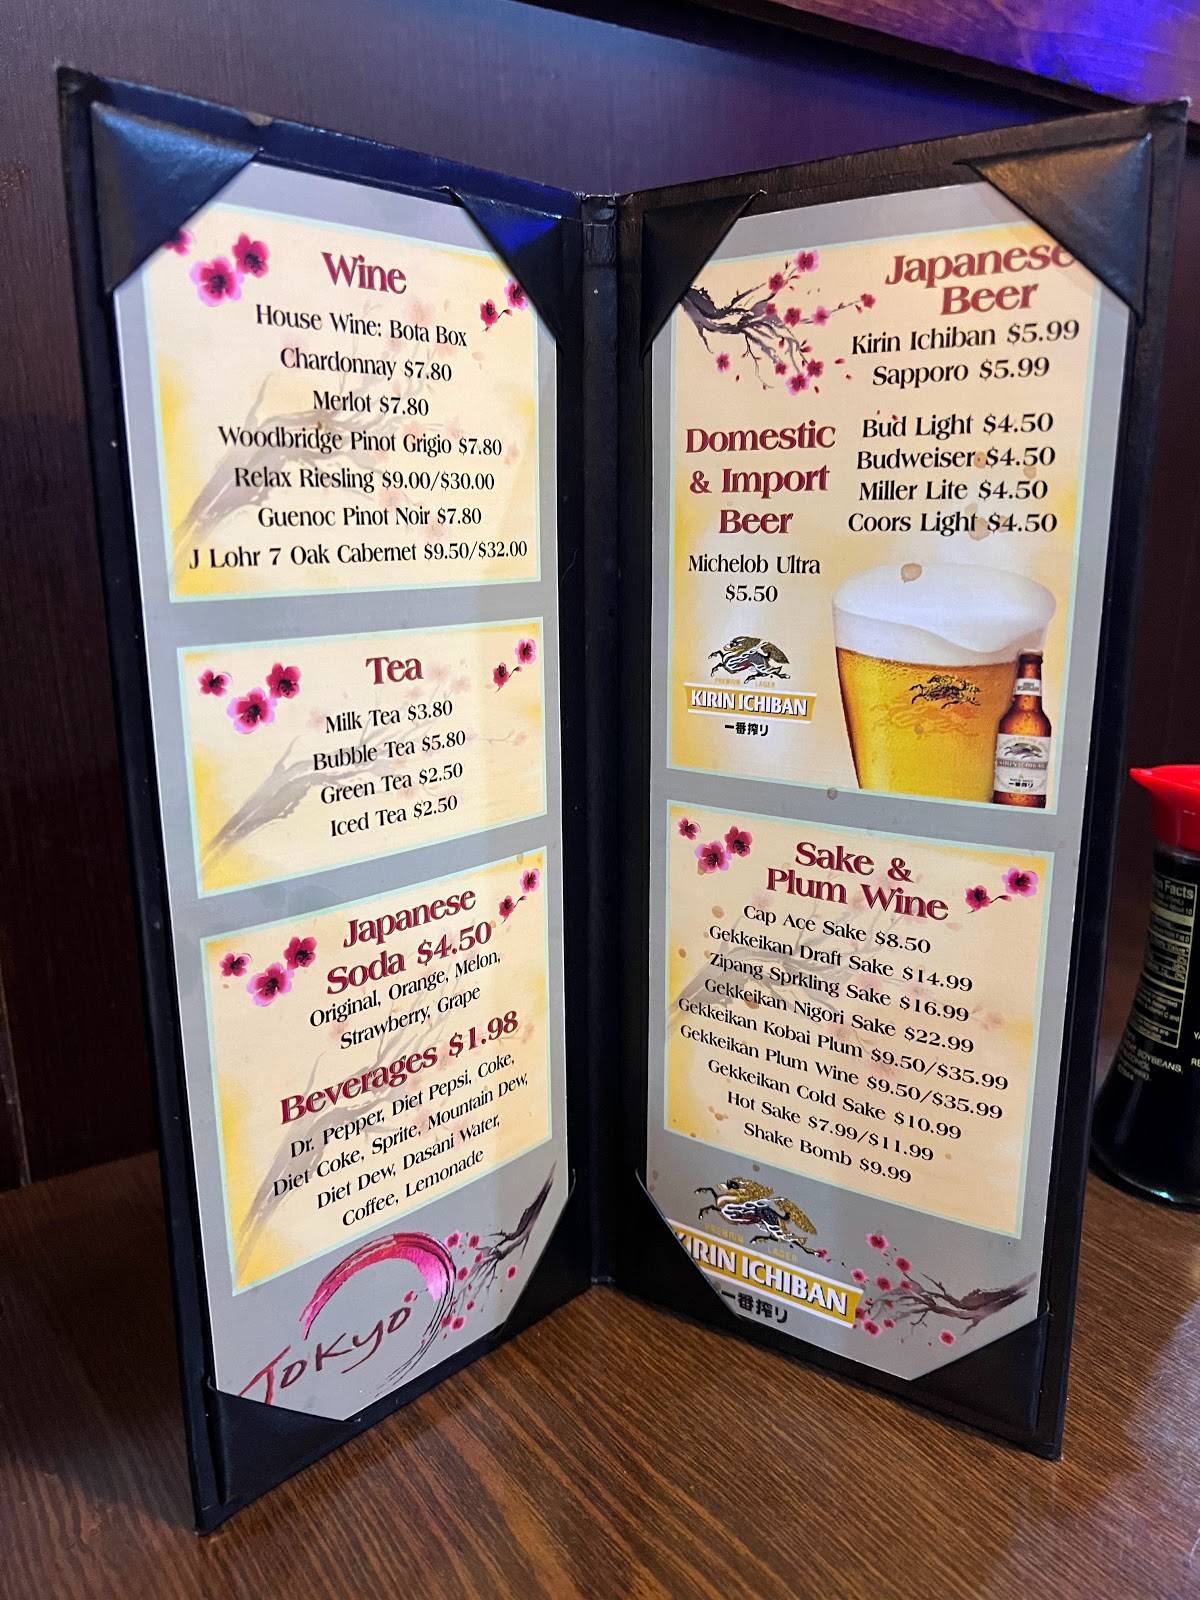 Wine
House Wine: Bota Box
Chardonnay $7.80
Merlot $7.80
Woodbridge Pinot Grigio $7.80
Relax Riesling $9.00/$30.00
Guenoc Pinot Noir $7.80
J Lohr 7 Oak Cabernet $9.50/$32.00
Tea
Milk Tea $3.80
Bubble Tea $5.80
Green Tea $2.50
Iced Tea $2.50
Japanese
Soda $4.50
Original, Orange, Melon,
Strawberry, Grape
Beverages $1.98
Dr. Pepper, Diet Pepsi, Coke,
Diet Coke, Sprite, Mountain Dew,
Diet Dew, Dasani Water,
Coffee, Lemonade
TOKYO
Japanese
Beer
Kirin Ichiban $5.99
Sapporo $5.99
Domestic
& Import
Beer
Bud Light $4.50
Budweiser $4.50
Miller Lite $4.50
Coors Light $4.50
Michelob Ultra
$5.50
PREMIUM LAGER
KIRIN ICHIBAN
一番搾り
KIRIN ICHIBAN
一番搾り
Sake &
Plum Wine
Cap Ace Sake $8.50
Gekkeikan Draft Sake $14.99
Zipang Sprkling Sake $16.99
Gekkeikan Nigori Sake $22.99
Gekkeikan Kobai Plum $9.50/$35.99
Gekkeikan Plum Wine $9.50/$35.99
Gekkeikan Cold Sake $10.99
Hot Sake $7.99/$11.99
Shake Bomb $9.99
PREMIUM LAGER
KIRIN ICHIBAN
一番搾り
Facts
SOYBEANS,